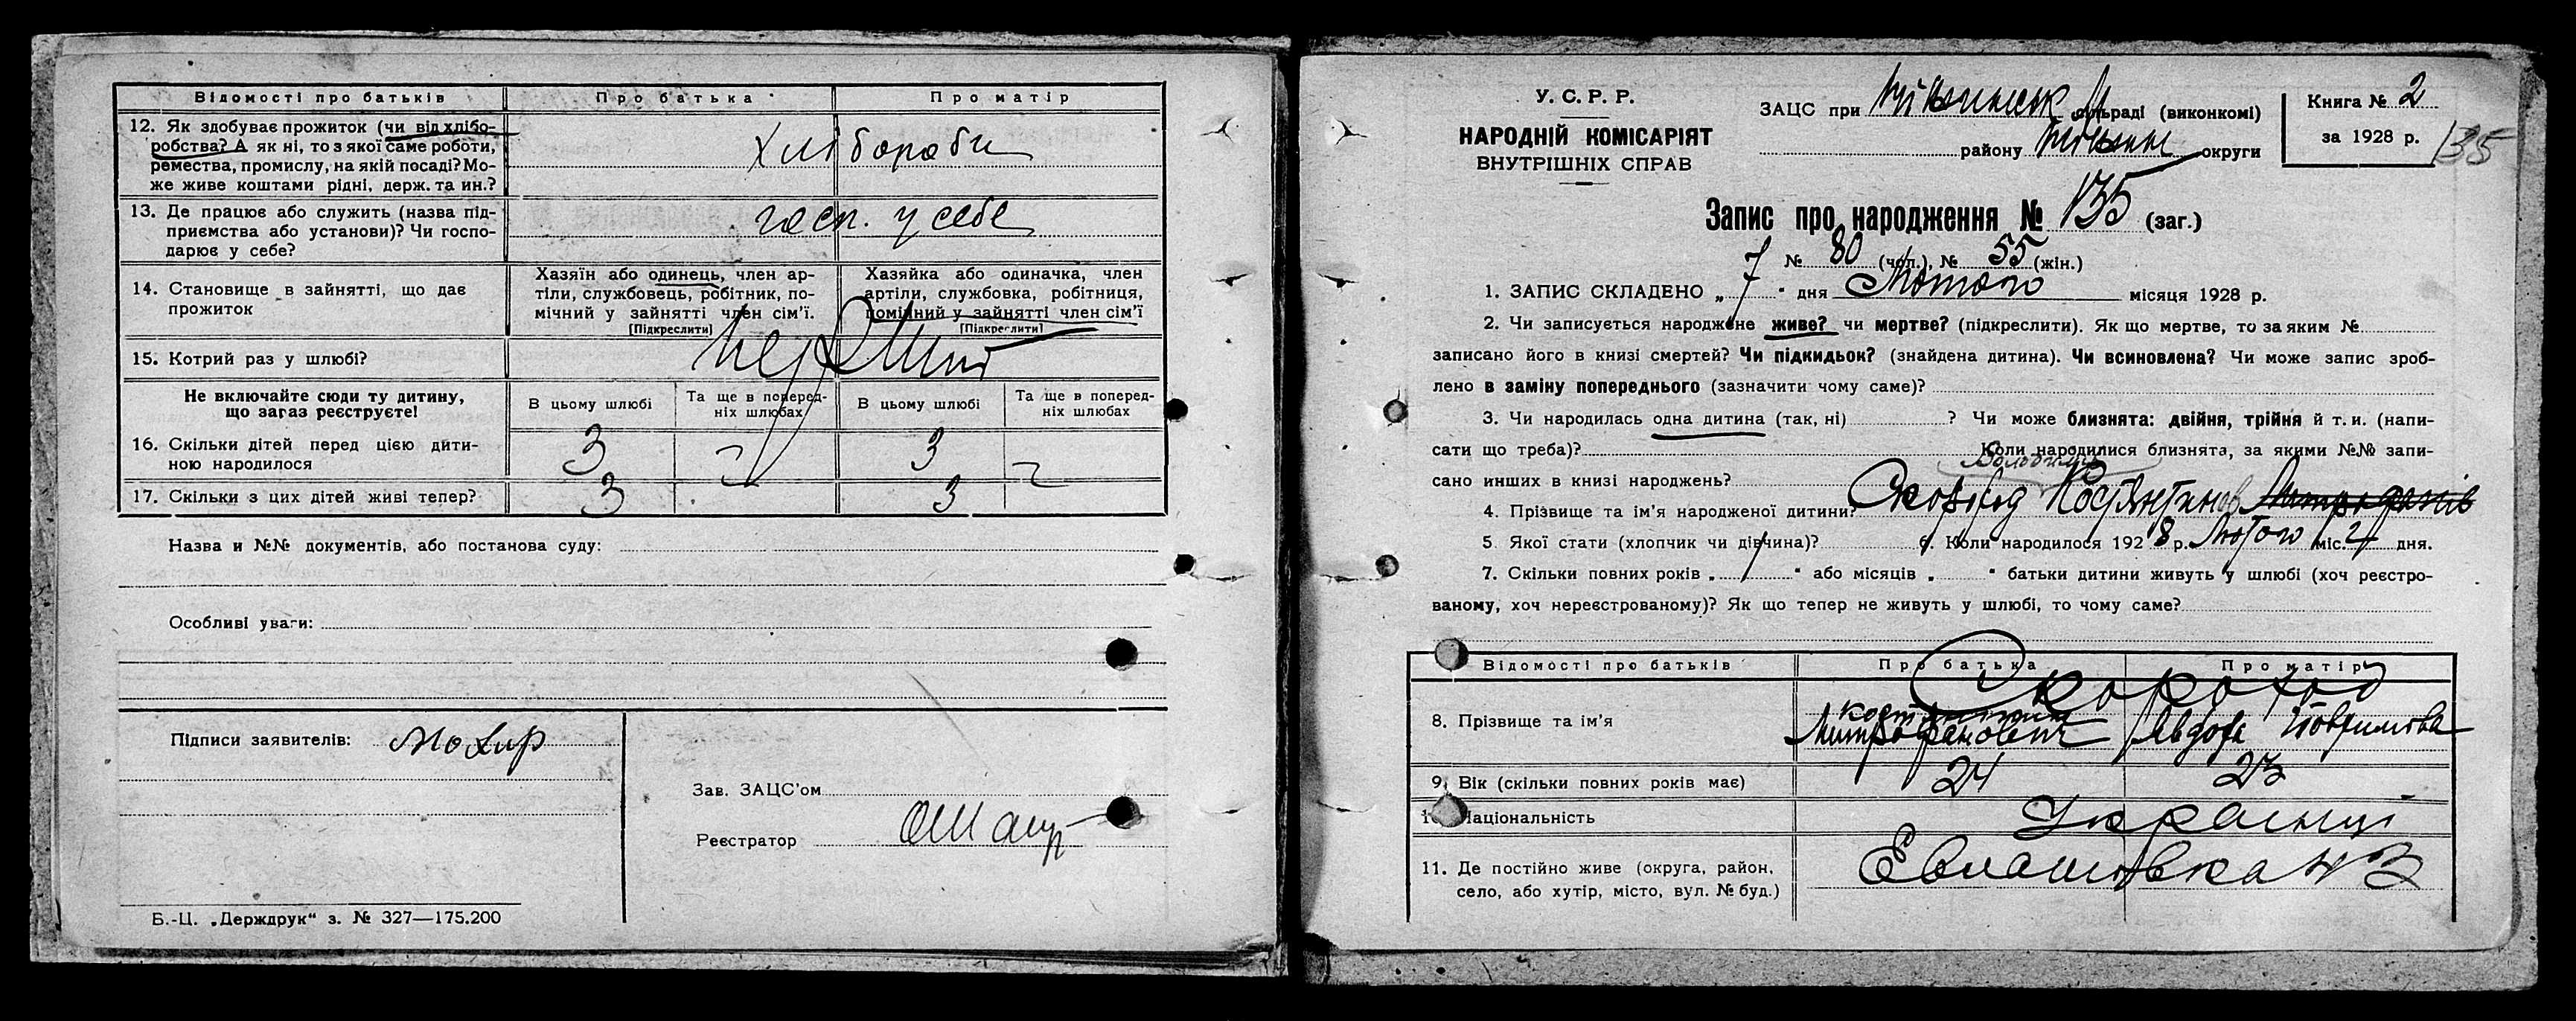 Відомості про батьків Про батька Про матір
12. Як здобуває прожиток (чи від хлібо-
робства? А як ні, то з якої саме роботи,
ремества, промислу, на якій посаді? Мо-
же живе коштами рідні, держ. та ин.?
хлібороби
13. Де працює або служить (назва під-
приємства або установи)? Чи госпо-
дарює у себе?
госп. у себе
14. Становище в зайнятті, що дає
прожиток
Хазяїн або одинець, член ар-
тіли, службовець, робітник, по-
мічний у зайнятті член сім'ї.
[Підкреслити]
Хазяйка або одиначка, член
артіли, службовка, робітниця,
помічний у зайнятті член сім'ї
[Підкреслити]
15. Котрий раз у шлюбі?
перший
Не включайте сюди ту дитину,
що загаз реєструєте!
В цьому шлюбі
Та ще в поперед-
ніх шлюбах
В цьому шлюбі
Та ще в поперед-
ніх шлюбах
16. Скільки дітей перед цією дити-
ною народилося
3 3
17. Скільки з цих дітей живі тепер? 3 3
Назва и №№ документів, або постанова суду:
Особливі уваги:
Підписи заявителів:
Зав. ЗАЦС'ом
Реєстратор
Б.-Ц. „Держдрук“ з. № 327—175.200
У. С. Р. Р.
НАРОДНІЙ КОМІСАРІЯТ
ВНУТРІШНІХ СПРАВ
ЗАЦС при сільраді (виконкомі)
району округи
Книга № 2
за 1928 р.
135
Запис про народження № 135 (заг.)
№ 80 (чол.), № 55 (жін.)
1. ЗАПИС СКЛАДЕНО „ 7 “ дня Лютого місяця 1928 р.
2. Чи записується народжене живе? чи мертве? (підкреслити). Як що мертве, то за яким №
записано його в книзі смертей? Чи підкидьок? (знайдена дитина). Чи всиновлена? Чи може запис зроб-
лено в заміну попереднього (зазначити чому саме)?
3. Чи народилась одна дитина (так, ні) ? Чи може близнята: двійня, трійня й т. и. (напи-
сати що треба)? Коли народилися близнята, за якими №№ запи-
сано инших в книзі народжень?
4. Прізвище та ім'я народженої дитини? Скороход
5. Якої стати (хлопчик чи дівчина)? 6. Коли народилося 1928 р. Лютого міс. 2 дня.
7. Скільки повних років „ “ або місяців „ “ батьки дитини живуть у шлюбі (хоч реєстро-
ваному, хоч нереєстрованому)? Як що тепер не живуть у шлюбі, то чому саме?
Відомості про батьків Про батька Про матір
Скороход
8. Прізвище та ім'я
Костянтин
Митрофанович Явдоха
9. Вік (скільки повних років має) 24 23
10. Національність Українці
11. Де постійно живе (округа, район,
село, або хутір, місто, вул. № буд.)
Евлашовка